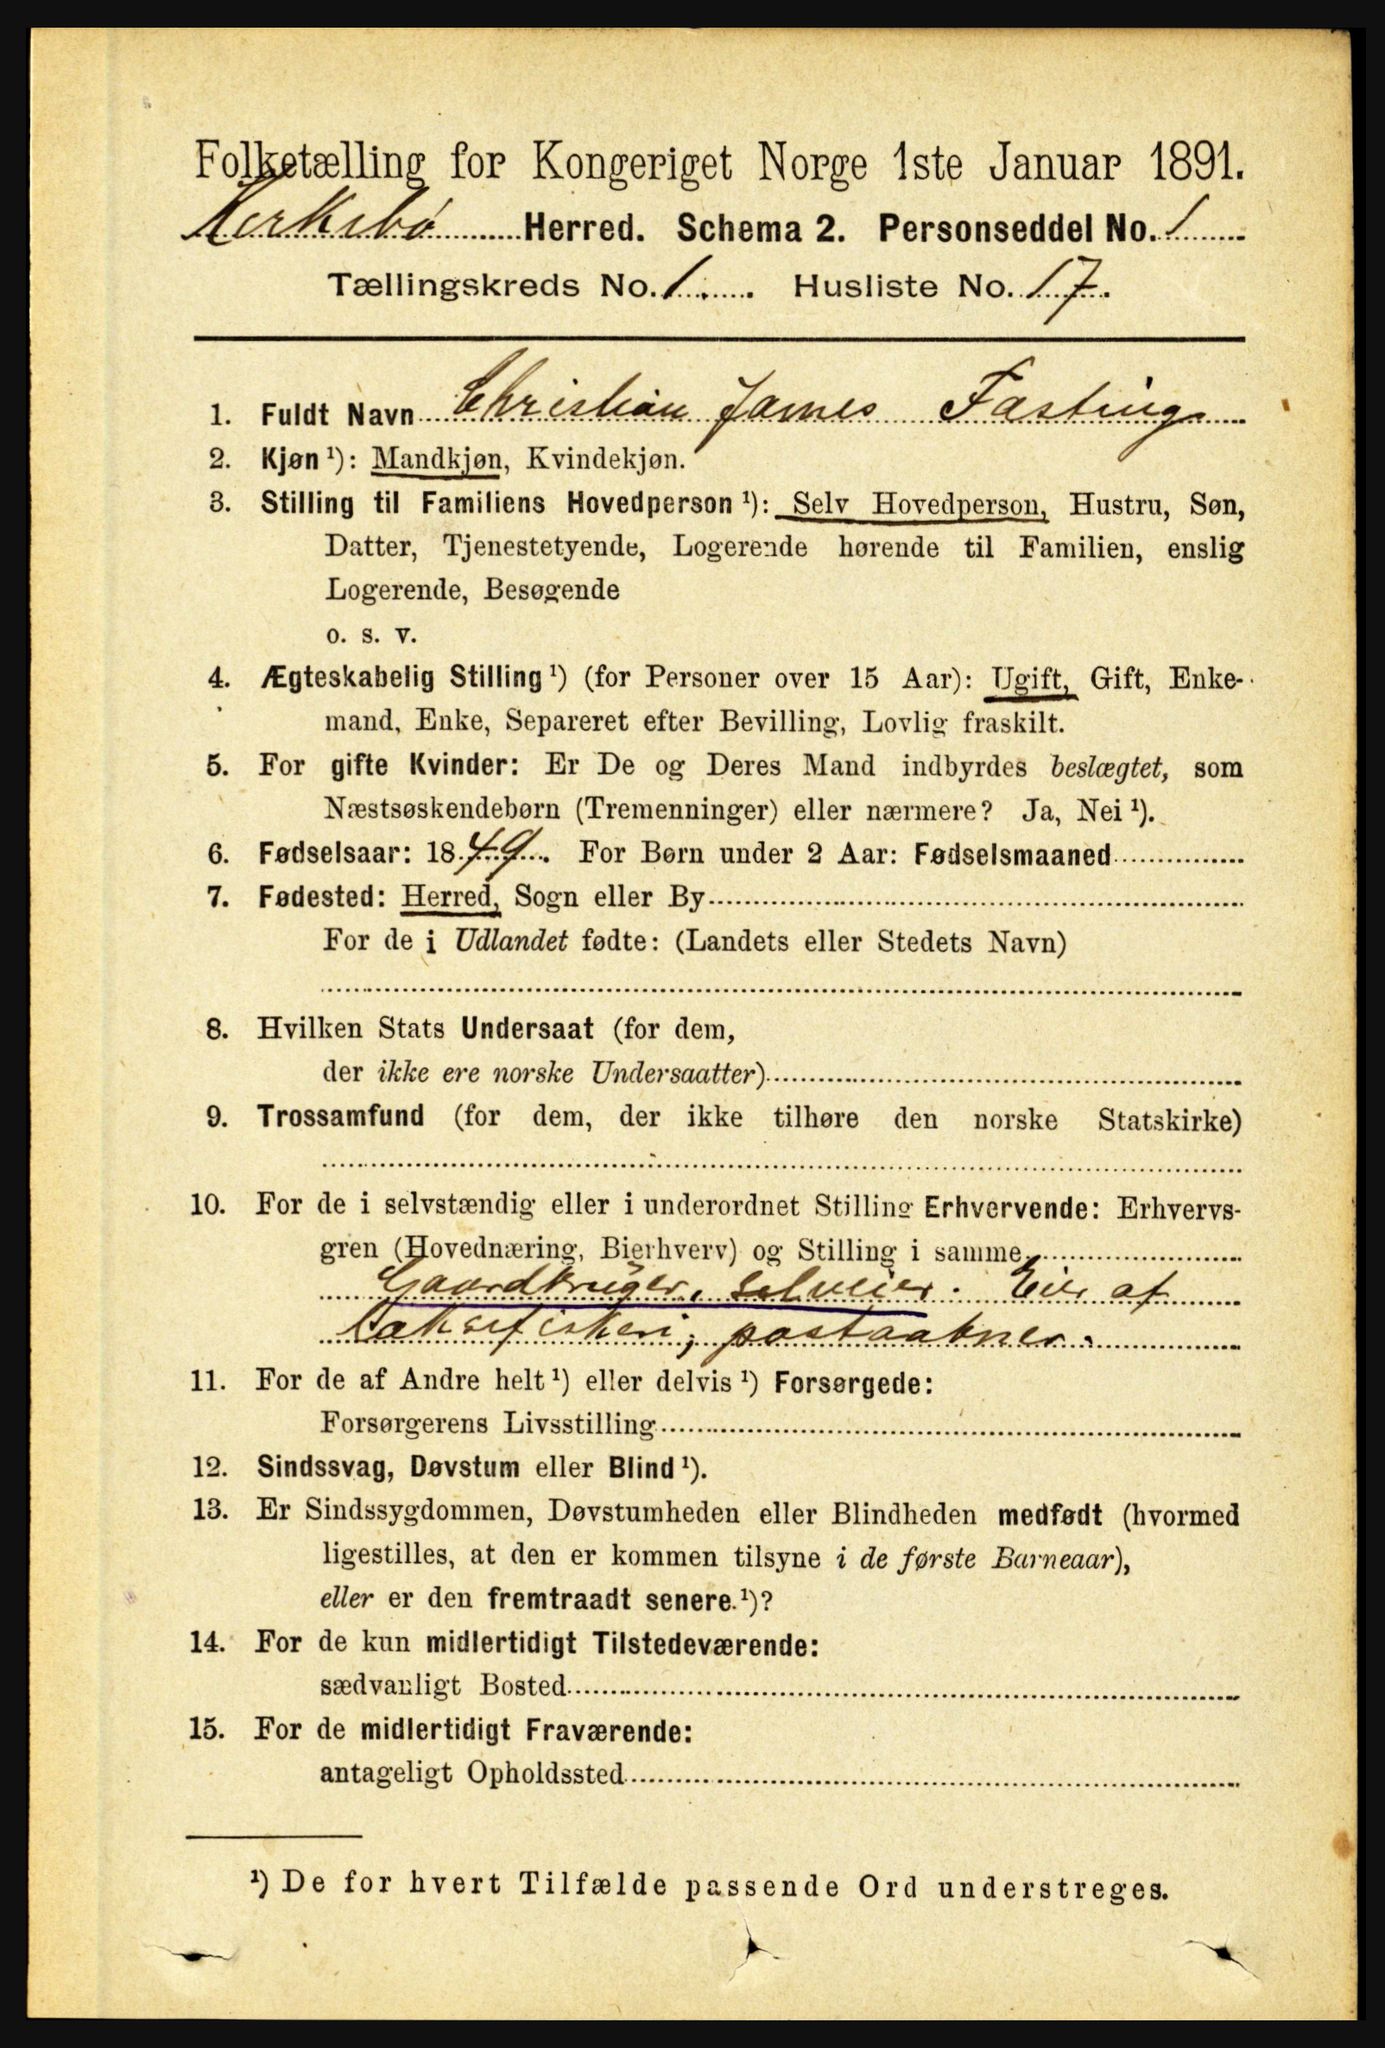 Folketælling for Kongeriget Norge 1ste Januar 1891.
Kirkebø Herred. Schema 2. Personseddel No. 1
Tællingskreds No. 1. Husliste No. 17.
1. Fuldt Navn Christian James Fasting.
2. Kjøn ¹): Mandkjøn, Kvindekjøn.
3. Stilling til Familiens Hovedperson ¹): Selv Hovedperson, Hustru, Søn,
Datter, Tjenestetyende, Logerende hørende til Familien, enslig
Logerende, Besøgende
o. s. v.
4. Ægteskabelig Stilling ¹) (for Personer over 15 Aar): Ugift, Gift, Enke-
mand, Enke, Separeret efter Bevilling, Lovlig fraskilt.
5. For gifte Kvinder: Er De og Deres Mand indbyrdes beslægtet, som
Næstsøskendebørn (Tremenninger) eller nærmere? Ja, Nei ¹).
6. Fødselsaar: 1849. For Børn under 2 Aar: Fødselsmaaned
7. Fødested: Herred, Sogn eller By
For de i Udlandet fødte: (Landets eller Stedets Navn)
8. Hvilken Stats Undersaat (for dem,
der ikke ere norske Undersaatter)
9. Trossamfund (for dem, der ikke tilhøre den norske Statskirke)
10. For de i selvstændig eller i underordnet Stilling Erhvervende: Erhvervs-
gren (Hovednæring, Bierhverv) og Stilling i samme
Gaardbruger, selveier. Eier af
Laksefiskeri; postaabner.
11. For de af Andre helt ¹) eller delvis ¹) Forsørgede:
Forsørgerens Livsstilling
12. Sindssvag, Døvstum eller Blind ¹).
13. Er Sindssygdommen, Døvstumheden eller Blindheden medfødt (hvormed
ligestilles, at den er kommen tilsyne i de første Barneaar),
eller er den fremtraadt senere. ¹)?
14. For de kun midlertidigt Tilstedeværende:
sædvanligt Bosted
15. For de midlertidigt Fraværende:
antageligt Opholdssted
¹) De for hvert Tilfælde passende Ord understreges.